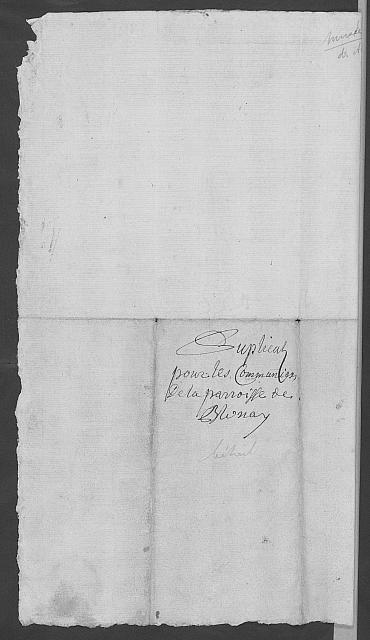 Duplicat
pour les Communiers
De la parroisse de
Blonay